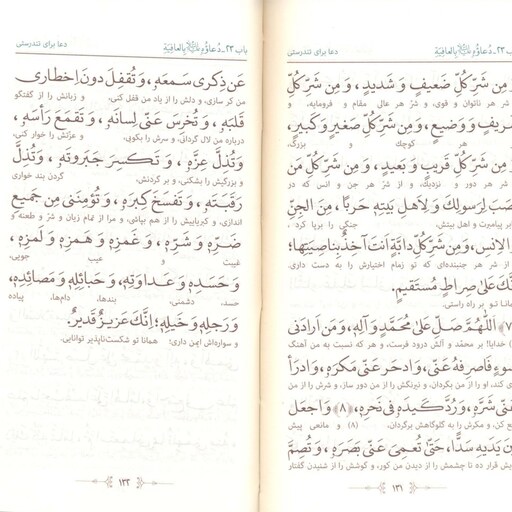 باب ۲۳ - دُعاؤُهُ ﷺ بِالعافِیَةِ دعا برای تندرستی
مِن شَرِّ كُلِّ ضَعيفٍ وَ شَديدٍ، وَ مِن شَرِّ كُلِّ
شر هر ناتوان و قوی، و شر هر عالی مقام و فرومایه، و
شَريفٍ وَ وَضيعٍ، وَ مِن شَرِّ كُلِّ صَغيرٍ وَ كَبيرٍ،
هر کوچک و بزرگ،
وَ مِن شَرِّ كُلِّ قَريبٍ وَ بَعيدٍ، وَ مِن شَرِّ كُلِّ مَن
شر هر دور و نزدیک، و از شر هر جن و انس که در
نَصَبَ لِرَسولِكَ وَ لِاَهلِ بَيتِهِ حَربًا، مِنَ الجِنِّ
پیامبر و اهل بیتش، جنگی را برپا کرد،
وَ الاِنسِ، وَ مِن شَرِّ كُلِّ دابَّةٍ اَنتَ آخِذٌ بِناصِيَتِها؛
از شر هر جنبنده‌ای که تو زمام اختیارش را به دست داری.
اِنَّكَ عَلىٰ صِراطٍ مُستَقيمٍ.
همانا تو بر راه راستی.
﴿۷﴾ اَللّٰهُمَّ صَلِّ عَلىٰ مُحَمَّدٍ وَ آلِهِ، وَ مَن اَرادَنى
خدایا! بر محمّد و آلش درود فرست، و هر که نسبت به من آهنگ
بِسوءٍ فَاصرِفهُ عَنّى، وَ ادحَر عَنّى مَكرَهُ، وَ ادرَأ
کند، او را از من بگردان، و نیرنگش را از من دور ساز، و شرش را از من
عَنّى شَرَّهُ، وَ رُدَّ كَيدَهُ فى نَحرِهِ، ﴿۸﴾ وَ اجعَل
کن، و مکرش را به گلوگاهش برگردان. (۸) و مانعی پیش
بَينَ يَدَيهِ سَدًّا، حَتّىٰ تُعمِىَ عَنّى بَصَرَهُ، وَ تُصِمَّ
قرار ده تا چشمش را از دیدن من کور، و گوشش را از شنیدن گفتار
۱۳۱
باب ۲۳ - دُعاؤُهُ ﷺ بِالعافِیَةِ دعا برای تندرستی
عَن ذِكرى سَمعَهُ، وَ تُقفِلَ دونَ اِخطارى
من کر سازی، و دلش را از یاد من قفل کنی، و زبانش را از گفتگو
قَلبَهُ، وَ تُخرِسَ عَنّى لِسانَهُ، وَ تَقمَعَ رَأسَهُ،
درباره من لال گردانی، و سرش را بکوبی، و عزتش را خوار کنی،
وَ تُذِلَّ عِزَّهُ، وَ تَكسِرَ جَبَروتَهُ، وَ تُذِلَّ
و بزرگیش را بشکنی، و بر گردنش، گردن بند خواری
رَقَبَتَهُ، وَ تَفسَخَ كِبرَهُ، وَ تُؤمِنَنى مِن جَميعِ
اندازی، و کبریایش را از هم بپاشی، و مرا از تمام زیان و شر و طعنه و
ضَرِّهِ وَ شَرِّهِ، وَ غَمزِهِ وَ هَمزِهِ وَ لَمزِهِ،
غیبت و عیب جویی،
وَ حَسَدِهِ وَ عَداوَتِهِ، وَ حَبائِلِهِ وَ مَصائِدِهِ،
حسد، دشمنی، بندها، دام‌ها، پیاده
وَ رَجِلِهِ وَ خَيلِهِ؛ اِنَّكَ عَزيزٌ قَديرٌ.
و سواره‌اش امن داری؛ همانا تو شکست‌ناپذیر توانایی.
۱۳۲